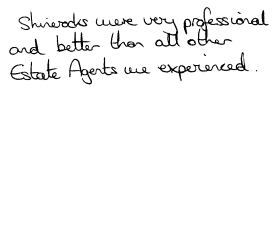 Shinerocks were very professional
and better than all other
Estate Agents we experienced.